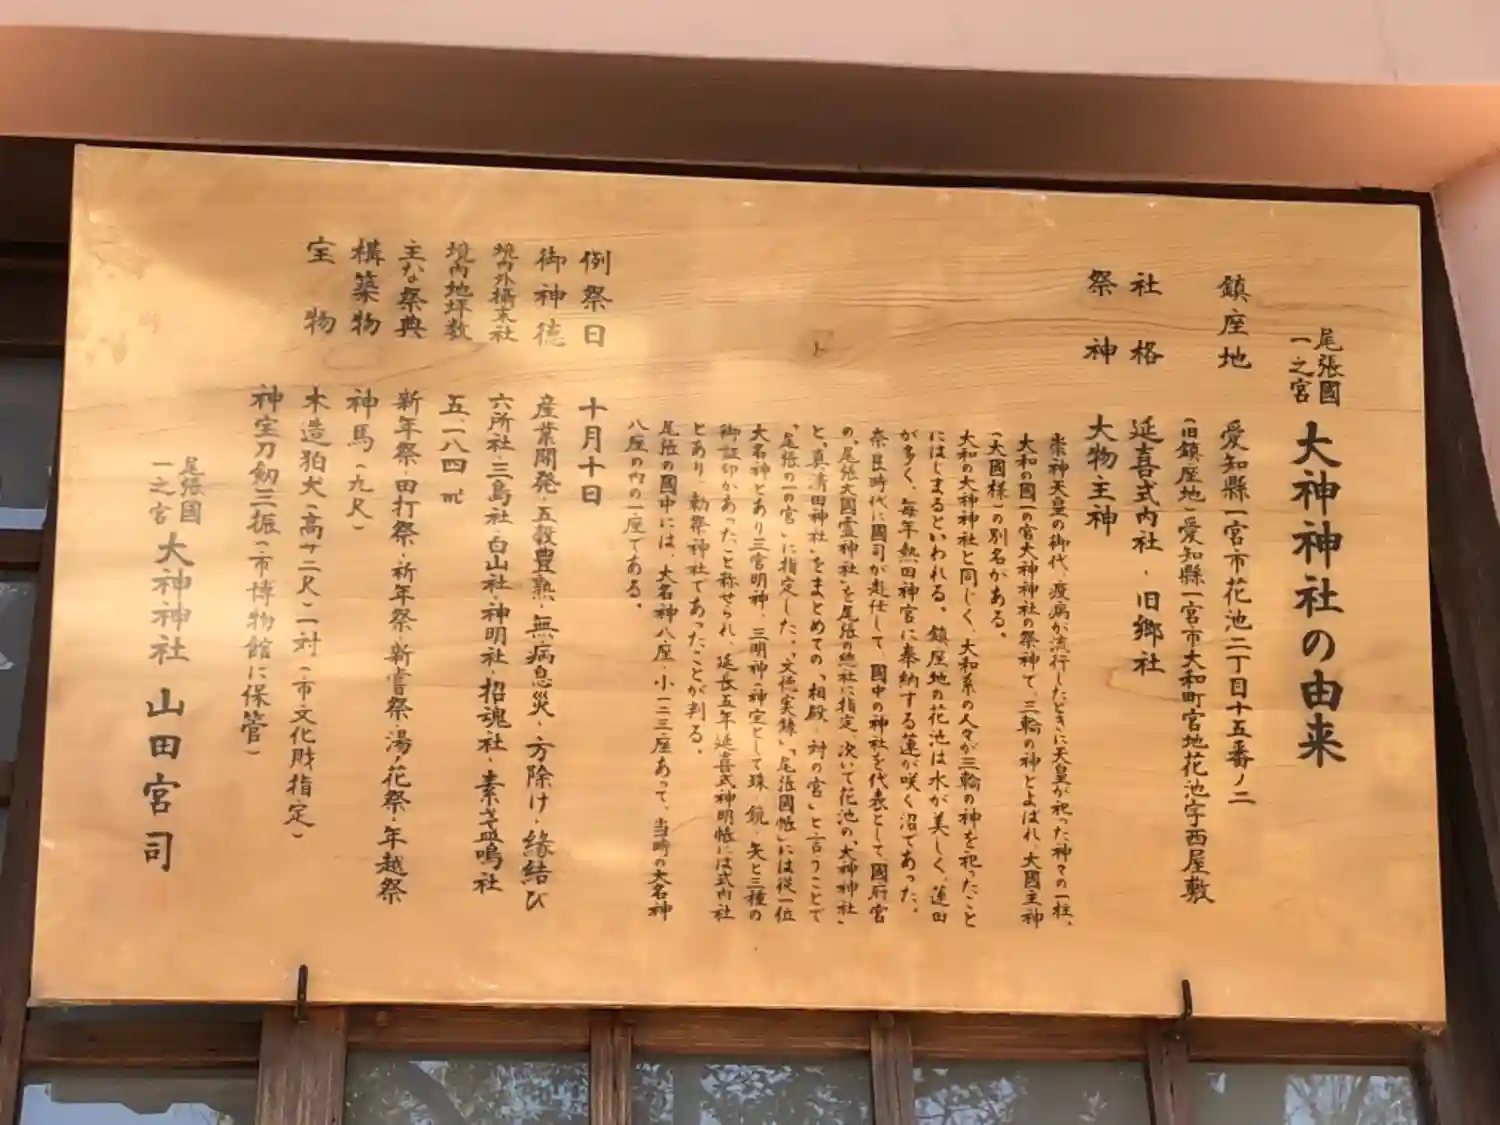 尾張國
一之宮 大神神社の由来
鎮座地 愛知縣一宮市花池二丁目十五番ノ二
(旧鎮座地)愛知縣一宮市大和町宮地花池字西屋敷
社格 延喜式内社・旧郷社
祭神 大物主神
崇神天皇の御代、疫病が流行したときに天皇が祀った神々の一柱、
大和の國一の宮大神神社の祭神で、三輪の神とよばれ、大國主神
(大國様)の別名がある。
大和の大神神社と同じく、大和系の人々が三輪の神を祀ったこと
にはじまるといわれる。鎮座地の花池は水が美しく、蓮田
が多く、毎年熱田神宮に奉納する蓮が咲く沼であった。
奈良時代に國司が赴任して、國中の神社を代表として、國府宮
の「尾張大國霊神社」を尾張の総社に指定、次いで花池の「大神神社」
と、「真清田神社」をまとめての「相殿・対の宮」と言うことで
「尾張の一の宮」に指定した。「文徳実録」「尾張國帳」には従一位
大名神とあり三宮明神、三明神(神宝として珠・鏡・矢と三種の
御証印があったこと称せられ、延長五年延喜式神明帳には式内社
とあり、勅祭神社であったことが判る。
尾張の國中には、大名神八座・小一二三座あって、当時の大名神
八座の内の一座である。
例祭日 十月十日
御神徳 産業開発・五穀豊熟・無病息災・方除け・縁結び
境内外攝末社 六所社・三島社・白山社・神明社・招魂社・素盞鳴社
境内地坪数 五、一八四㎡
主な祭典 新年祭・田打祭・祈年祭・新嘗祭・湯ノ花祭・年越祭
構築物 神馬(九尺)
宝物 木造狛犬(高サ二尺)一対(市文化財指定)
神宝刀劔三振(市博物館に保管)
尾張國
一之宮 大神神社 山田宮司